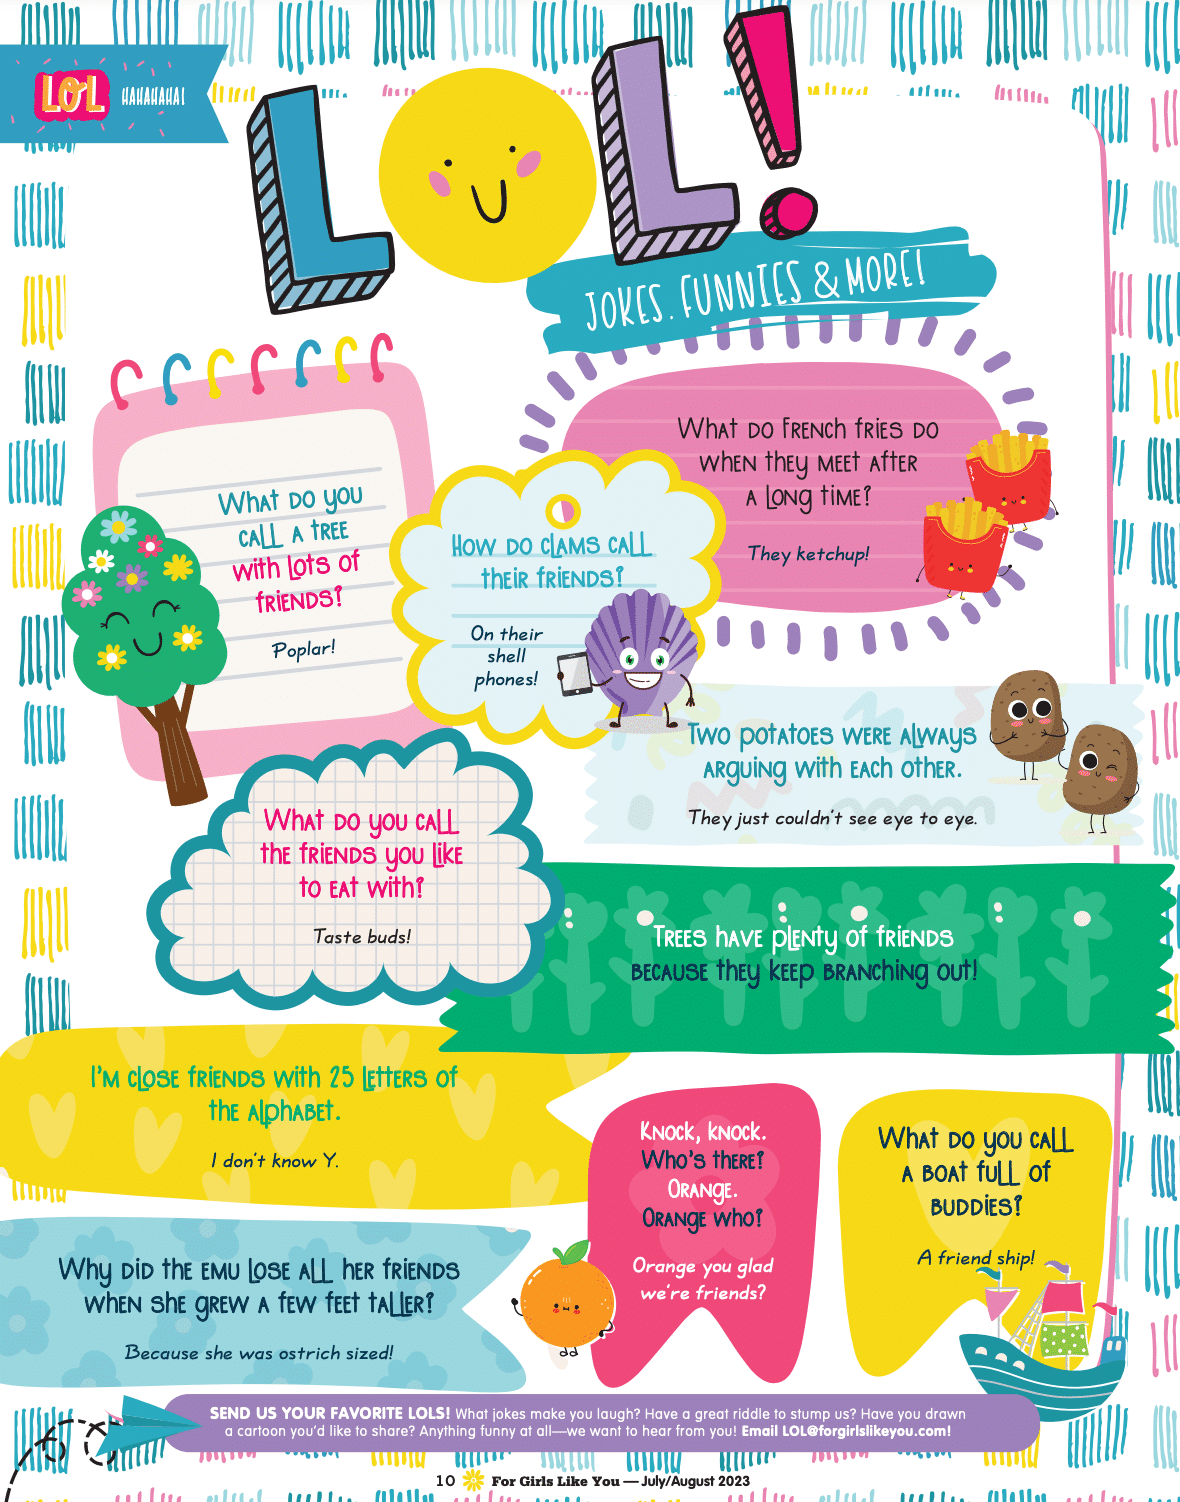 LOL HAHAHAHA!
LOL!
JOKES, FUNNIES & MORE!
What do you
call a tree
with lots of
friends?
Poplar!
How do clams call
their friends?
On their
shell
phones!
What do french fries do
when they meet after
a long time?
They ketchup!
Two potatoes were always
arguing with each other.
They just couldn't see eye to eye.
What do you call
the friends you like
to eat with?
Taste buds!
Trees have plenty of friends
because they keep branching out!
I'm close friends with 25 letters of
the alphabet.
I don't know Y.
Knock, knock.
Who's there?
Orange.
Orange who?
Orange you glad
we're friends?
What do you call
a boat full of
buddies?
A friend ship!
Why did the emu lose all her friends
when she grew a few feet taller?
Because she was ostrich sized!
SEND US YOUR FAVORITE LOLS! What jokes make you laugh? Have a great riddle to stump us? Have you drawn
a cartoon you'd like to share? Anything funny at all—we want to hear from you! Email LOL@forgirlslikeyou.com!
10 For Girls Like You — July/August 2023